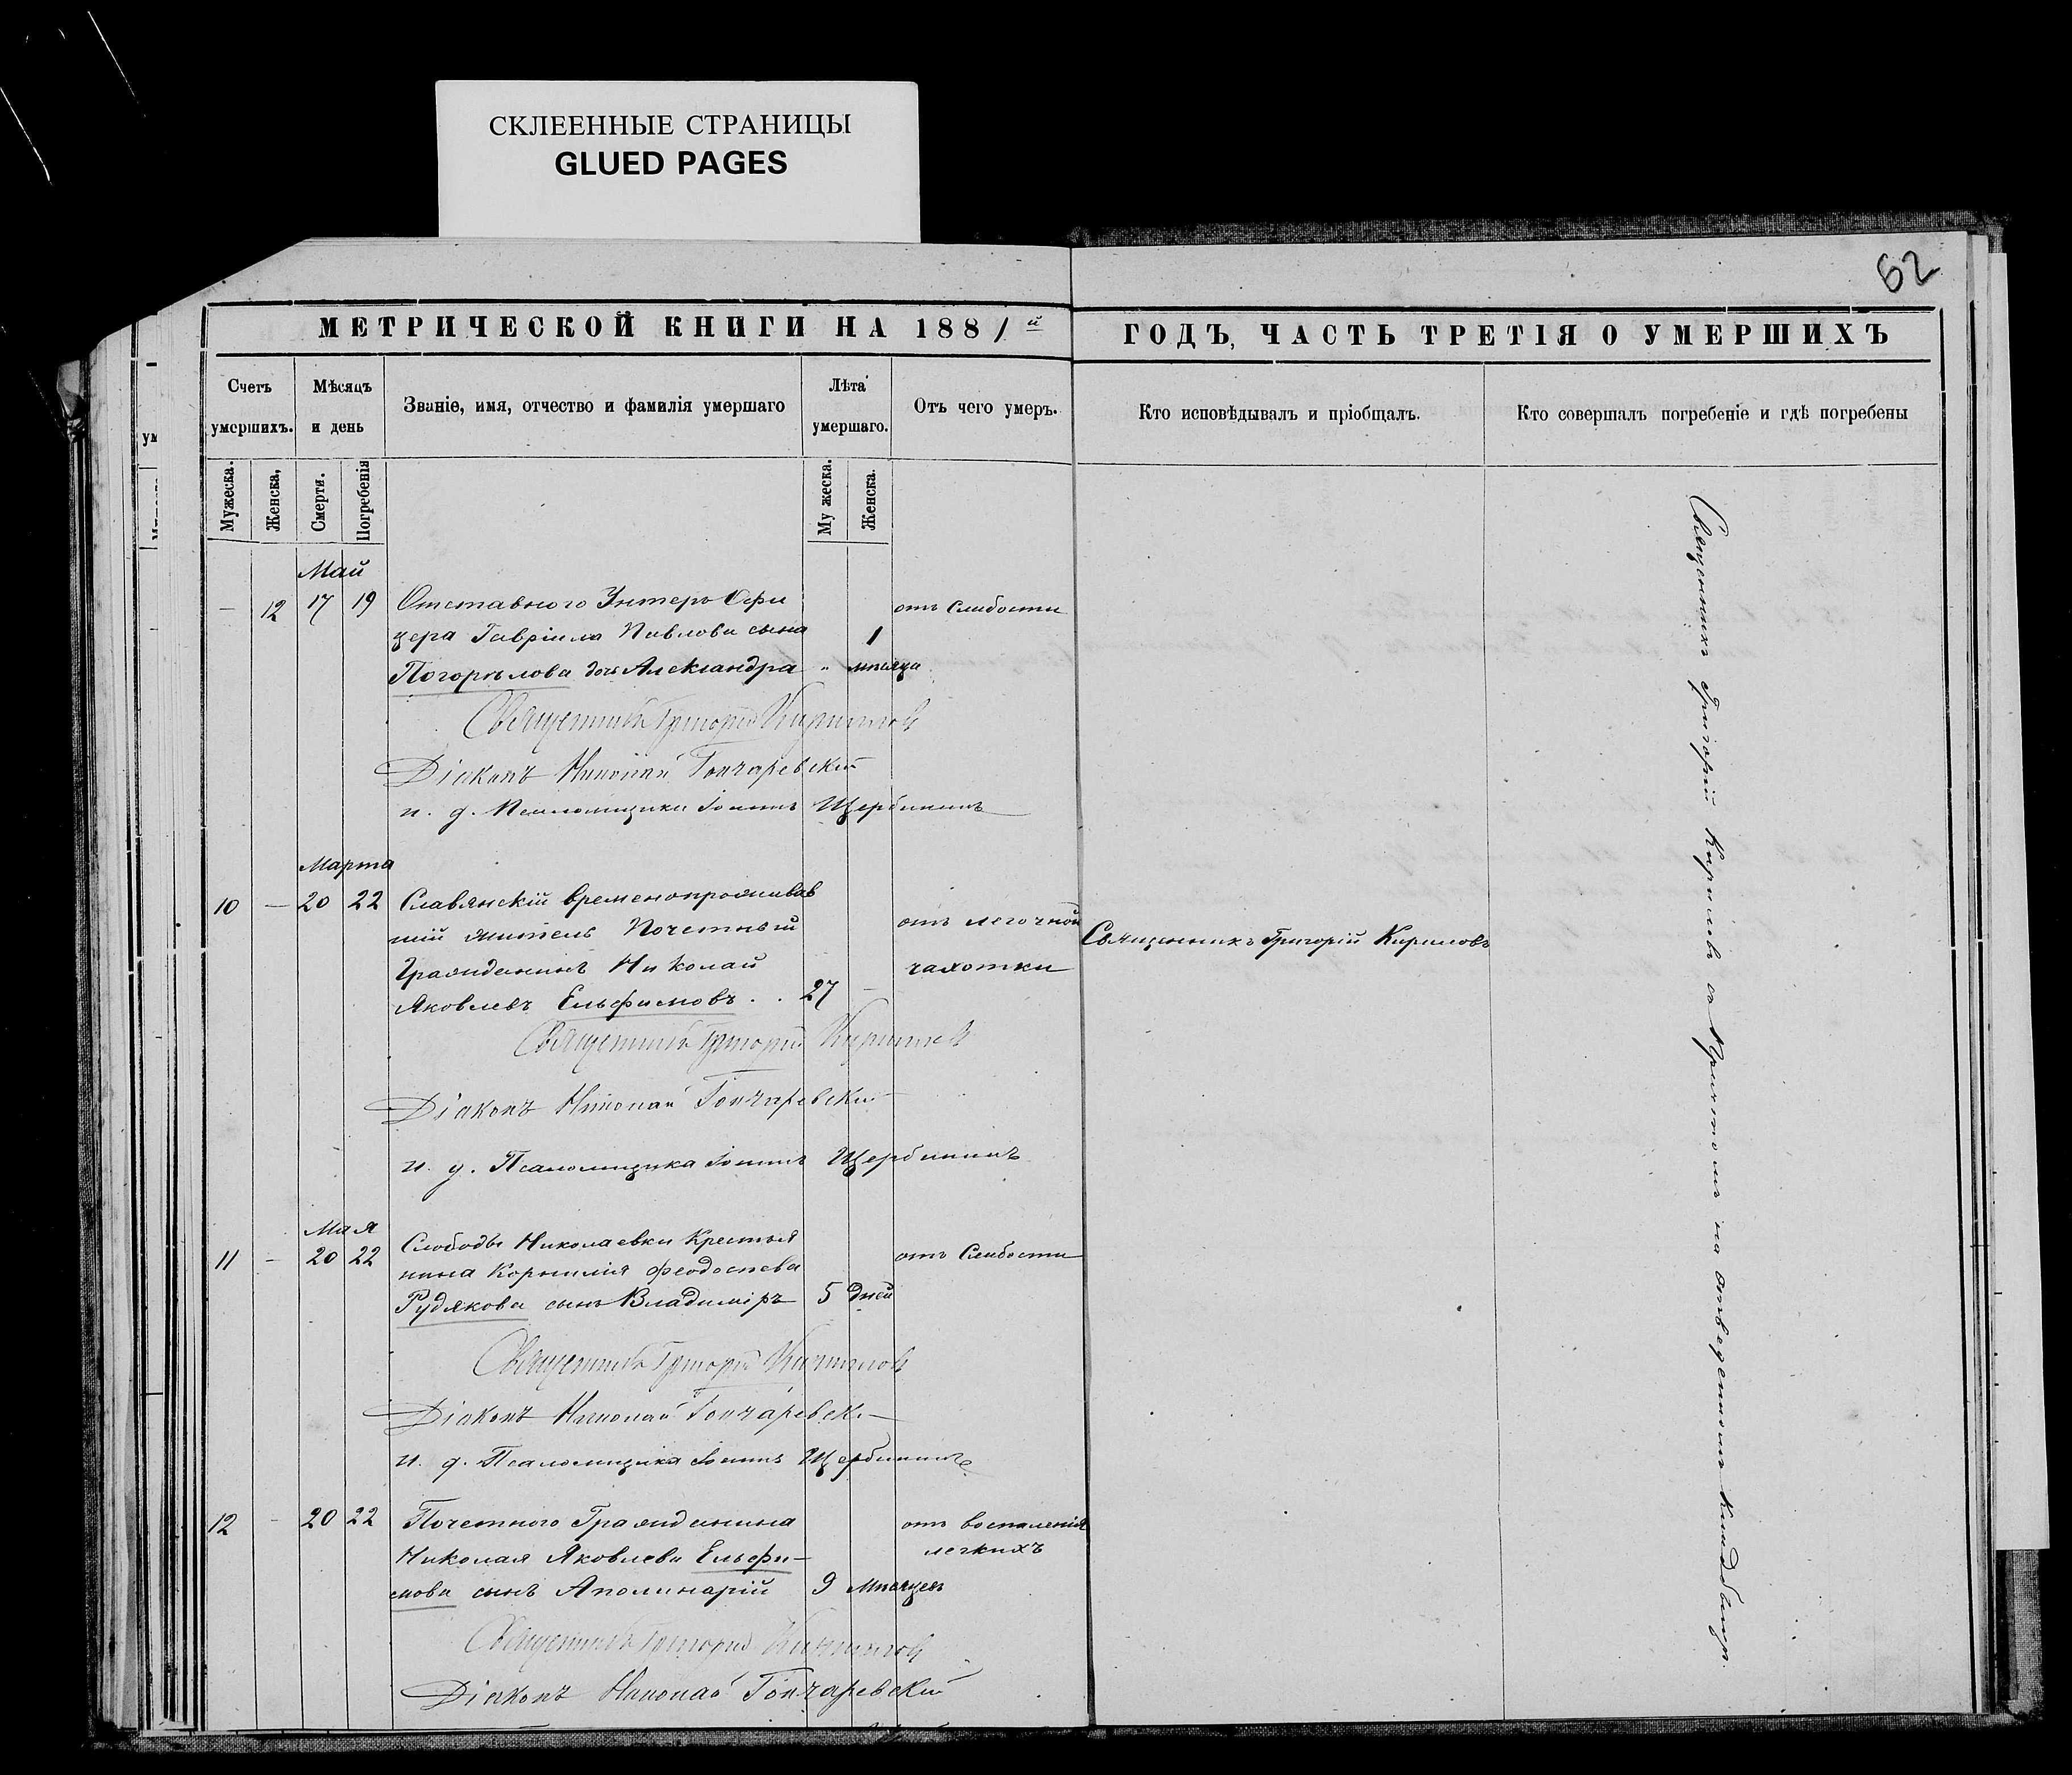 СКЛЕЕННЫЕ СТРАНИЦЫ
GLUED PAGES
62
МЕТРИЧЕСКОЙ КНИГИ НА 1881й
ГОДЪ, ЧАСТЬ ТРЕТІЯ О УМЕРШИХЪ
Счетъ умершихъ.
Мѣсяцъ и день
Званіе, имя, отчество и фамилія умершаго
Лѣта умершаго.
Отъ чего умеръ.
Кто исповѣдывалъ и пріобщалъ.
Кто совершалъ погребеніе и гдѣ погребены
Мужеска.
Женска,
Смерти.
Погребенія
Му жеска.
Женска.
Май
— 12 17 19 Отставного Унтеръ Офи отъ Слабости
цера Гавріила Павлова сына 1
Погорѣлова дочь Александра " мѣсяца
Священникъ Григорій Кирилловъ
Діаконъ Николай Гончаревскій
и. д. Псаломщика Іоаннъ Щербининъ
Марта
10 — 20 22 Славянскій временопроживав
шій житель Почетный отъ легочной
Гражданинъ Николай чахотки
Яковлевъ Ельфимовъ . . 27 —
Священникъ Григорій Кириловъ
Священникъ Григорій Кирилловъ
Діаконъ Николай Гончаревскій
и. д. Псаломщика Іоаннъ Щербининъ
Мая
11 — 20 22 Слободы Николаевки Крестья отъ Слабости
нина Корнилія Феодосѣева
Рудякова сынъ Владиміръ 5 дней
Священникъ Григорій Кирилловъ
Діаконъ Николай Гончаревскі
и. д. Псаломщика Іоаннъ Щербининъ
12 — 20 22 Почетного Гражданина отъ воспаленія
Николая Яковлева Ельфи— легкихъ
мова сынъ Аполинарій 9 Мѣсяцев
Священникъ Григорій Кирилловъ
Діаконъ Николай Гончаревскій
Священникъ Григорій Кирилевъ съ Причтомъ на отведенномъ кладбищѣ.